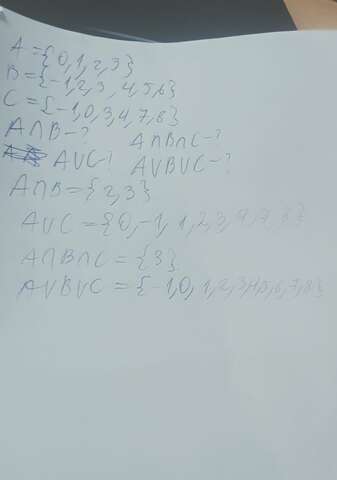 A = {0, 1, 2, 3}
B = {-1, 2, 3, 4, 5, 6}
C = {-1, 0, 3, 4, 7, 8}
A∩B-? A∩B∩C-?
A∪C-? A∪B∪C-?
A∩B = {2, 3}
A∪C = {0, -1, 1, 2, 3, 4, 7, 8}
A∩B∩C = {3}
A∪B∪C = {-1, 0, 1, 2, 3, 4, 5, 6, 7, 8}